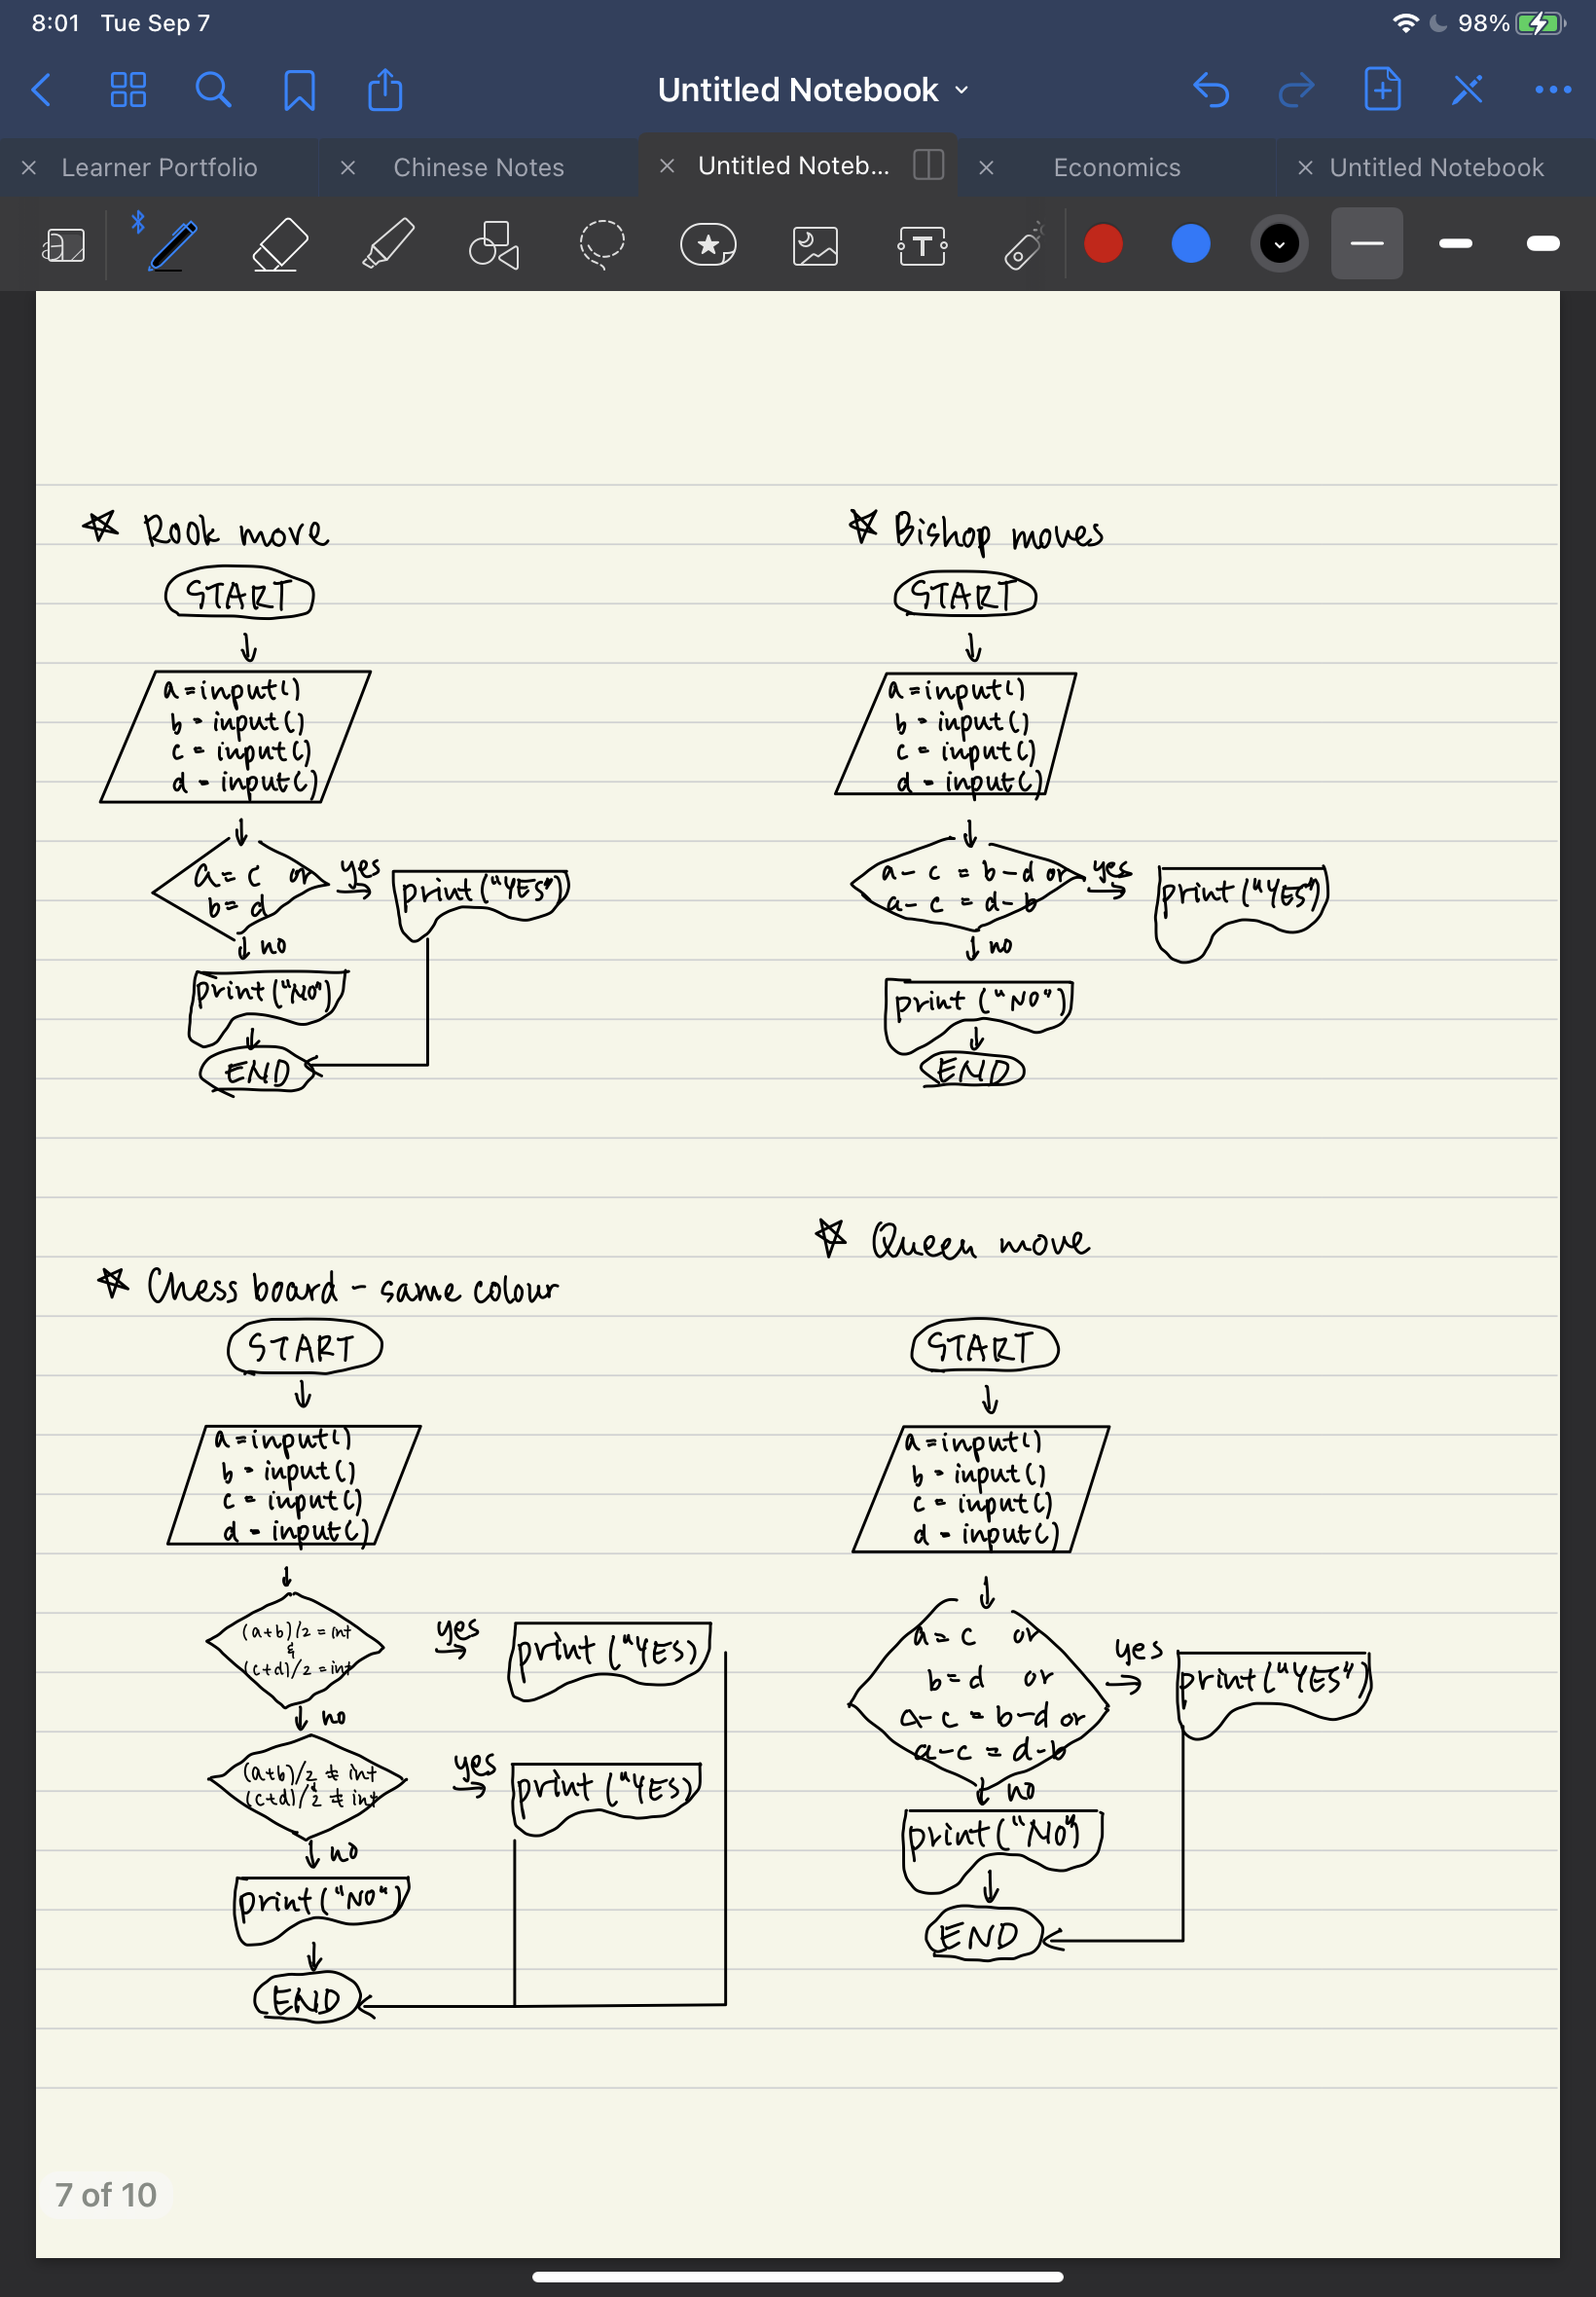 8:01 Tue Sep 7
98%
Untitled Notebook
Learner Portfolio
Chinese Notes
Untitled Noteb...
Economics
Untitled Notebook
T
Rook move
START
a = input()
b = input()
c = input()
d = input()
a = c or
b = d
yes
print ("YES")
no
print ("NO")
END
Bishop moves
START
a = input()
b = input()
c = input()
d = input()
a - c = b - d or
a - c = d - b
yes
print ("YES")
no
print ("NO")
END
Chess board - same colour
START
a = input()
b = input()
c = input()
d = input()
(a+b)/2 = int
&
(c+d)/2 = int
yes
print ("YES)
no
(a+b)/2 ≠ int
&
(c+d)/2 ≠ int
yes
print ("YES)
no
print ("NO")
END
Queen move
START
a = input()
b = input()
c = input()
d = input()
a = c or
b = d or
a - c = b - d or
a - c = d - b
yes
print ("YES")
no
print ("NO")
END
7 of 10